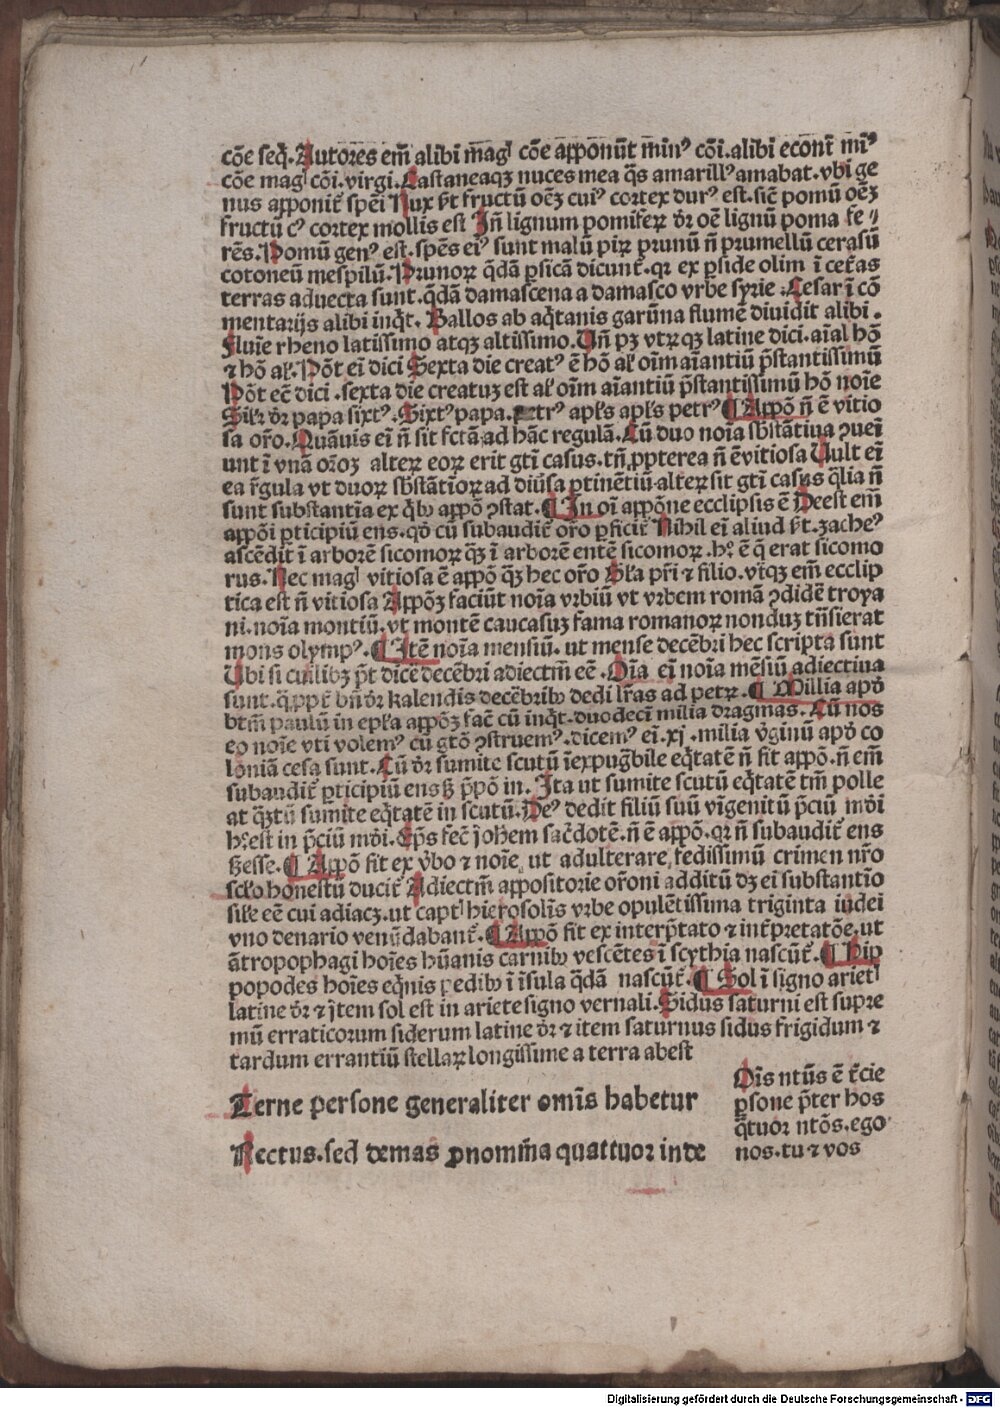 cōe seq̄. Autores em̄ alibi magꝭ cōe apponūt min⁹ cōi. alibi econt̄ min⁹
cōe magꝭ cōi. virgi. Castaneaqꝫ nuces mea q̄s amarill⁹ amabat. vbi ge
nus apponit᷑ spēi Nux h̄t fructū oēꝫ cui⁹ cortex dur⁹ est. sic̄ pomū oēꝫ
fructū c⁹ cortex mollis est Jn̄ lignum pomiferꝝ dr̄ oē lignū poma fe⸗
rēs. Pomū gen⁹ est. spēs ei⁹ sunt malū pirꝝ prunū n̄ prumellū cerasū
cotoneū mespilū. Prunoꝝ q̄dā ꝑsicā dicunt᷑. qꝛ ex ꝑside olim ī cet᷑as
terras aduecta sunt. q̄dā damascena a damasco vrbe syrie. Cesar ī cō
mentarijs alibi inq̄t. Gallos ab aq̄tanis garūna flumē diuidit alibi.
Fluīe rheno latissimo atqꝫ altissimo. Un̄ pꝫ vtrꝝqꝫ latine dici. aīal hō
⁊ hō al᷑. Pōt ei dici Sexta die creat⁹ ē hō al᷑ oīm aīantiū p̄stantissimū
Pōt eē dici. sexta die creatuꝫ est al᷑ oīm aīantiū p̄stantissimū hō noīe
Sil᷑r dr̄ papa sixt⁹. Sixt⁹ papa. petr⁹ apl᷑s apl᷑s petr⁹ ¶ Appō n̄ ē vitio
sa or̄o. Quāuis ei n̄ sit fctā ad hāc regulā. Cū duo noīa sb̄stātiua ꝯuei
unt ī vnā or̄oꝫ alterꝝ eoꝝ erit gt̄i casus. tn̄ ꝓpterea n̄ ē vitiosa Uult ei
ea r̄gula vt duoꝝ sb̄stātīoꝝ ad diu᷑sa ꝑtinētiū alterꝝ sit gt̄i casus q̄lia n̄
sunt substantīa ex q̄bꝰ appō ꝯstat. ¶ Jn oī appōne ecclipsis ē Deest em̄
appōi ꝑticipiū ens. qō cū subaudit᷑ or̄o ꝑficit᷑ Nihil ei aliud h̄t. zache⁹
ascēdit ī arborē sicomoꝝ qꝫ ī arborē entē sicomoꝝ. h⁹ ē q̄ erat sicomo
rus. Nec magꝭ vitiosa ē appō qꝫ hec or̄o Gl᷑a pr̄i ⁊ filio. vt᷑qꝫ em̄ ecclip
tica est n̄ vitiosa Appōꝫ faciūt noīa vrbiū vt vrbem romā ꝯdidē troya
ni. noīa montiū. vt montē caucasuꝫ fama romanoꝝ nonduꝫ tn̄sierat
mons olymp⁹. ¶ Jtē noīa mensiū. ut mense decēbri hec scripta sunt
Ubi si cuilibꝫ p̄t dice decēbri adiectm̄ eē. Oīa ei noīa mēsiū adiectiua
sunt. q̄ppt᷑ bn̄ dr̄ kalendis decēbribꝰ dedi lr̄as ad petrꝝ. ¶ Millia apd̄
btm̄ paulū in epl᷑a appōꝫ fac̄ cū inq̄t. duodecī milia dragmas. Cū nos
eo noīe vti volem⁹ cū gtō ꝯstruem⁹. dicem⁹ ei. xj. milia v᷑ginū apd̄ co
loniā cesa sunt. Cū dr̄ sumite scutū īexpug᷑bile eq̄tatē n̄ fit appō. n̄ em̄
subaudit᷑ ꝑticipiū ens sꝫ p̄pō in. Jta ut sumite scutū eq̄tatē tm̄ polle
at qꝫtū sumite eq̄tatē in scutū. De⁹ dedit filiū suū vnigenitū p̄ciū mōi
h⁹ est in p̄ciū mōi. Ep̄s fec̄ johem sac̄dotē. n̄ ē appō. qꝛ n̄ subaudit᷑ ens
sꝫ esse. ¶ Appō fit ex v᷑bo ⁊ noīe, ut adulterare, fedissimū crimen nr̄o
sclo honestū ducit᷑ Adiectm̄ appositorie or̄oni additū dꝫ ei substantīo
sil᷑e eē cui adiacꝫ. ut captꝭ hierosolīs vrbe opulētissima triginta iudei
vno denario venūdabant᷑. ¶ Appō fit ex interp̄tato ⁊ int᷑pretatōe, ut
ātropophagi hoīes hūanis carnibꝰ vescētes ī scythia nascūt᷑. ¶ Hip
popodes hoīes eq̄nis pedibꝰ ī īsula q̄dā nascūt᷑. ¶ Sol ī signo arietꝭ
latine dr̄ ⁊ j̄tem sol est in ariete signo vernali. Sidus saturni est supre
mū erraticorum siderum latine dr̄ ⁊ item saturnus sidus frigidum ⁊
tardum errantiū stellaꝝ longissime a terra abest
Terne persone generaliter omīs habetur
Rectus. sed demas ꝓnomīna quattuor inde
Oīs ntūs ē t᷑cie
ꝑsone p̄ter hos
q̄tuor ntōs. ego
nos. tu ⁊ vos
Digitalisierung gefördert durch die Deutsche Forschungsgemeinschaft - DFG